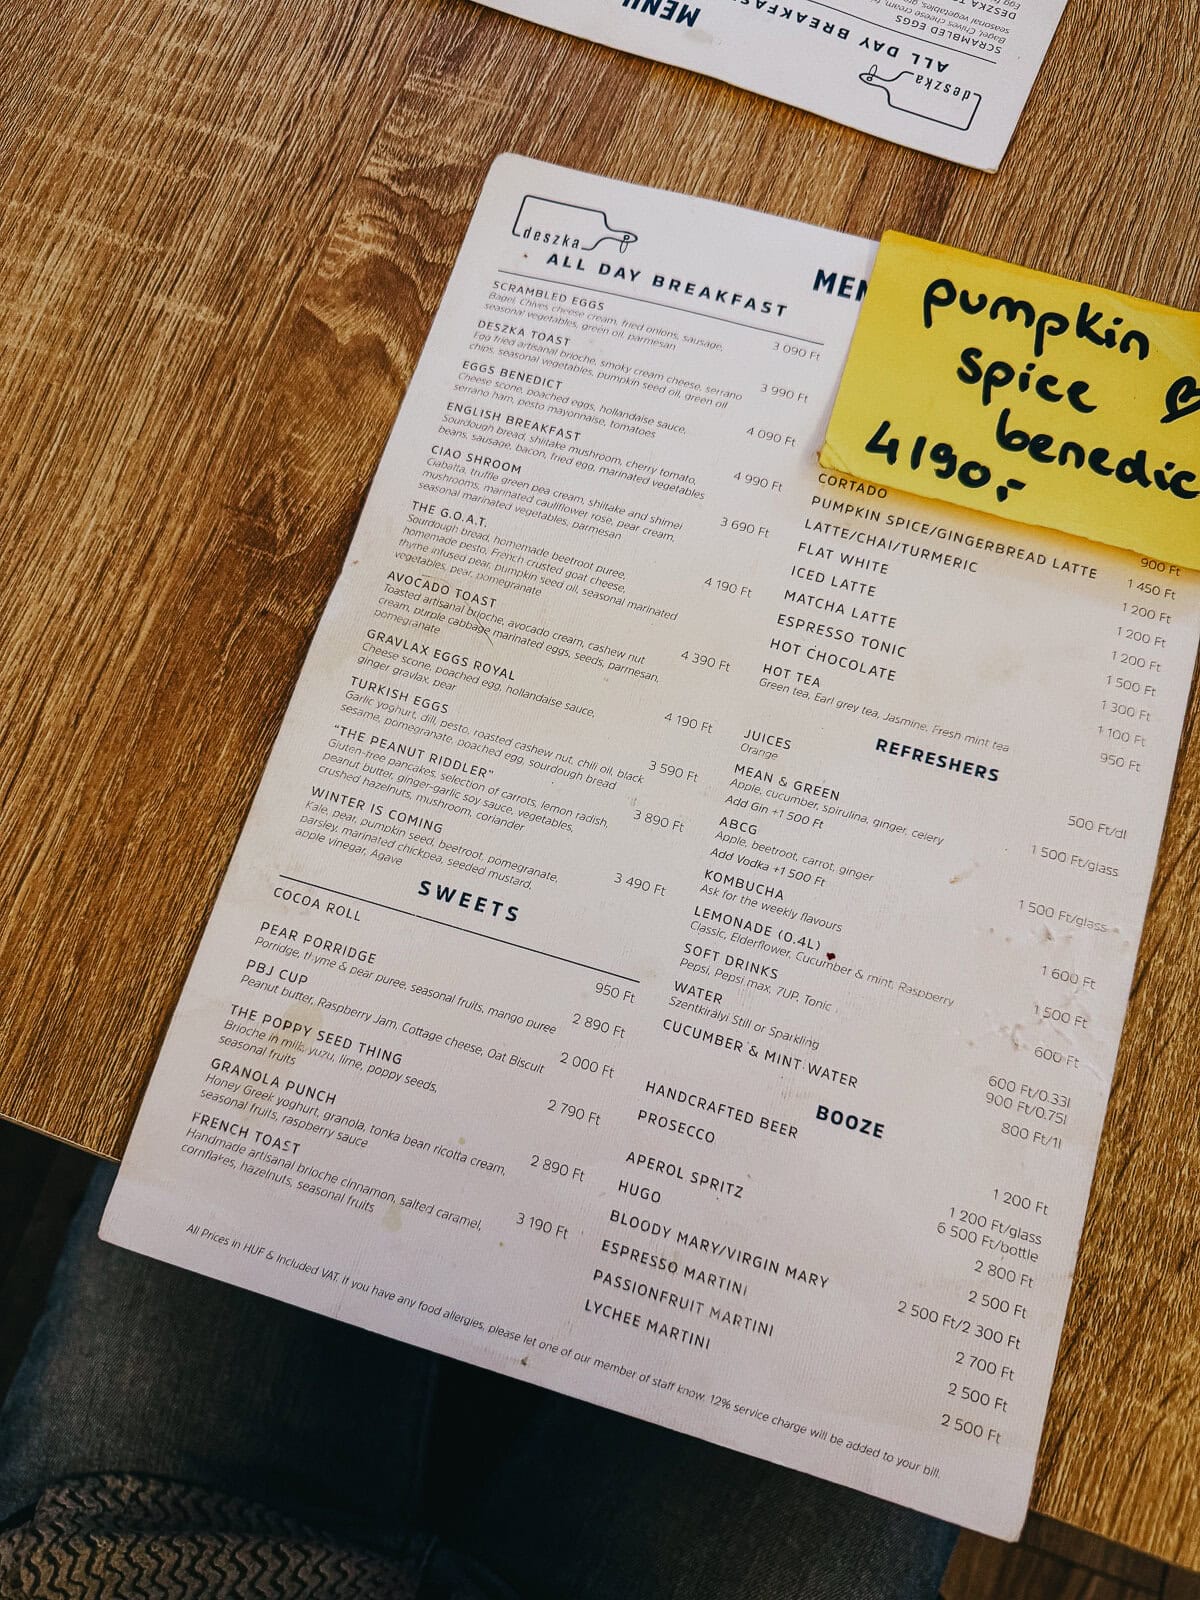 MENU
ALL DAY BREAKFAST
SCRAMBLED EGGS
deszka
deszka
ALL DAY BREAKFAST
SCRAMBLED EGGS
Bagel, Chives cheese cream, fried onions, sausage,
seasonal vegetables, green oil, parmesan
3 090 Ft
DESZKA TOAST
Egg fried artisanal brioche, smoky cream cheese, serrano
chips, seasonal vegetables, pumpkin seed oil, green oil
3 990 Ft
EGGS BENEDICT
Cheese scone, poached eggs, hollandaise sauce,
serrano ham, pesto mayonnaise, tomatoes
4 090 Ft
ENGLISH BREAKFAST
Sourdough bread, shiitake mushroom, cherry tomato,
beans, sausage, bacon, fried egg, marinated vegetables
4 990 Ft
CIAO SHROOM
Ciabatta, truffle green pea cream, shiitake and shimeji
mushrooms, marinated cauliflower rose, pear cream,
seasonal marinated vegetables, parmesan
3 690 Ft
THE G.O.A.T.
Sourdough bread, homemade beetroot puree,
homemade pesto, French crusted goat cheese,
thyme infused pear, pumpkin seed oil, seasonal marinated
vegetables, pear, pomegranate
4 190 Ft
AVOCADO TOAST
Toasted artisanal brioche, avocado cream, cashew nut
cream, purple cabbage marinated eggs, seeds, parmesan,
pomegranate
4 390 Ft
GRAVLAX EGGS ROYAL
Cheese scone, poached egg, hollandaise sauce,
ginger gravlax, pear
4 190 Ft
TURKISH EGGS
Garlic yoghurt, dill, pesto, roasted cashew nut, chili oil, black
sesame, pomegranate, poached egg, sourdough bread
3 590 Ft
"THE PEANUT RIDDLER"
Gluten-free pancakes, selection of carrots, lemon radish,
peanut butter, ginger-garlic soy sauce, vegetables,
crushed hazelnuts, mushroom, coriander
3 890 Ft
WINTER IS COMING
Kale, pear, pumpkin seed, beetroot, pomegranate,
parsley, marinated chickpea, seeded mustard,
apple vinegar, Agave
3 490 Ft
SWEETS
COCOA ROLL
950 Ft
PEAR PORRIDGE
Porridge, thyme & pear puree, seasonal fruits, mango puree
2 890 Ft
PBJ CUP
Peanut butter, Raspberry Jam, Cottage cheese, Oat Biscuit
2 000 Ft
THE POPPY SEED THING
Brioche in milk, yuzu, lime, poppy seeds,
seasonal fruits
2 790 Ft
GRANOLA PUNCH
Honey Greek yoghurt, granola, tonka bean ricotta cream,
seasonal fruits, raspberry sauce
2 890 Ft
FRENCH TOAST
Handmade artisanal brioche cinnamon, salted caramel,
cornflakes, hazelnuts, seasonal fruits
3 190 Ft
MEN
pumpkin
spice
benedic
4190,-
CORTADO
900 Ft
PUMPKIN SPICE/GINGERBREAD LATTE
1 450 Ft
LATTE/CHAI/TURMERIC
1 200 Ft
FLAT WHITE
1 200 Ft
ICED LATTE
1 200 Ft
MATCHA LATTE
1 500 Ft
ESPRESSO TONIC
1 300 Ft
HOT CHOCOLATE
1 100 Ft
HOT TEA
950 Ft
Green tea, Earl grey tea, Jasmine, Fresh mint tea
REFRESHERS
JUICES
Orange
500 Ft/dl
MEAN & GREEN
Apple, cucumber, spirulina, ginger, celery
Add Gin +1 500 Ft
1 500 Ft/glass
ABCG
Apple, beetroot, carrot, ginger
Add Vodka +1 500 Ft
1 500 Ft/glass
KOMBUCHA
Ask for the weekly flavours
1 600 Ft
LEMONADE (0.4L)
Classic, Elderflower, Cucumber & mint, Raspberry
1 500 Ft
SOFT DRINKS
Pepsi, Pepsi max, 7UP, Tonic
600 Ft
WATER
Szentkirályi Still or Sparkling
600 Ft/0.33l
900 Ft/0.75l
CUCUMBER & MINT WATER
800 Ft/1l
BOOZE
HANDCRAFTED BEER
1 200 Ft
PROSECCO
1 200 Ft/glass
6 500 Ft/bottle
APEROL SPRITZ
2 800 Ft
HUGO
2 500 Ft
BLOODY MARY/VIRGIN MARY
2 500 Ft/2 300 Ft
ESPRESSO MARTINI
2 700 Ft
PASSIONFRUIT MARTINI
2 500 Ft
LYCHEE MARTINI
2 500 Ft
All Prices in HUF & Included VAT. If you have any food allergies, please let one of our member of staff know. 12% service charge will be added to your bill.